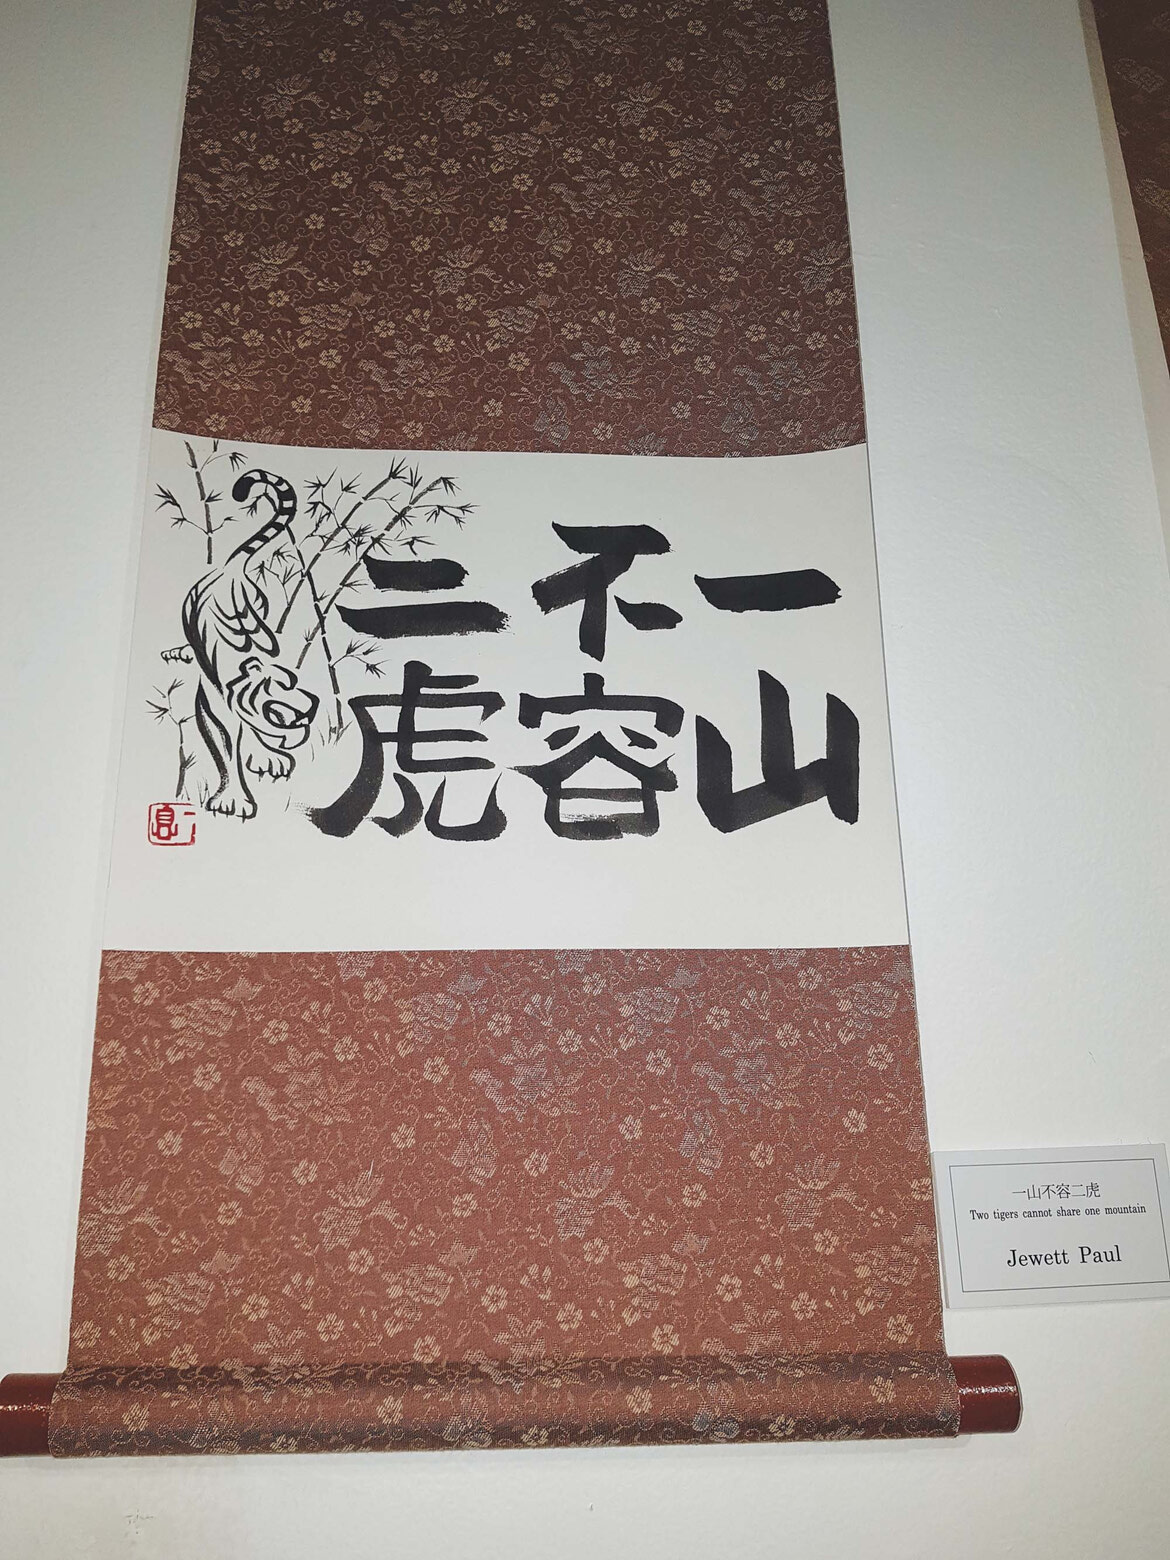 一山
不容
二虎
一山不容二虎
Two tigers cannot share one mountain
Jewett Paul